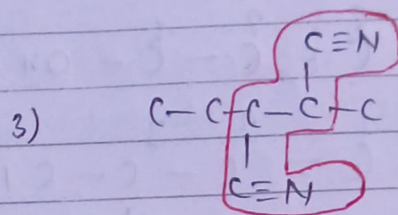 C≡N
|
3) C-C-C-C-C
|
C≡N